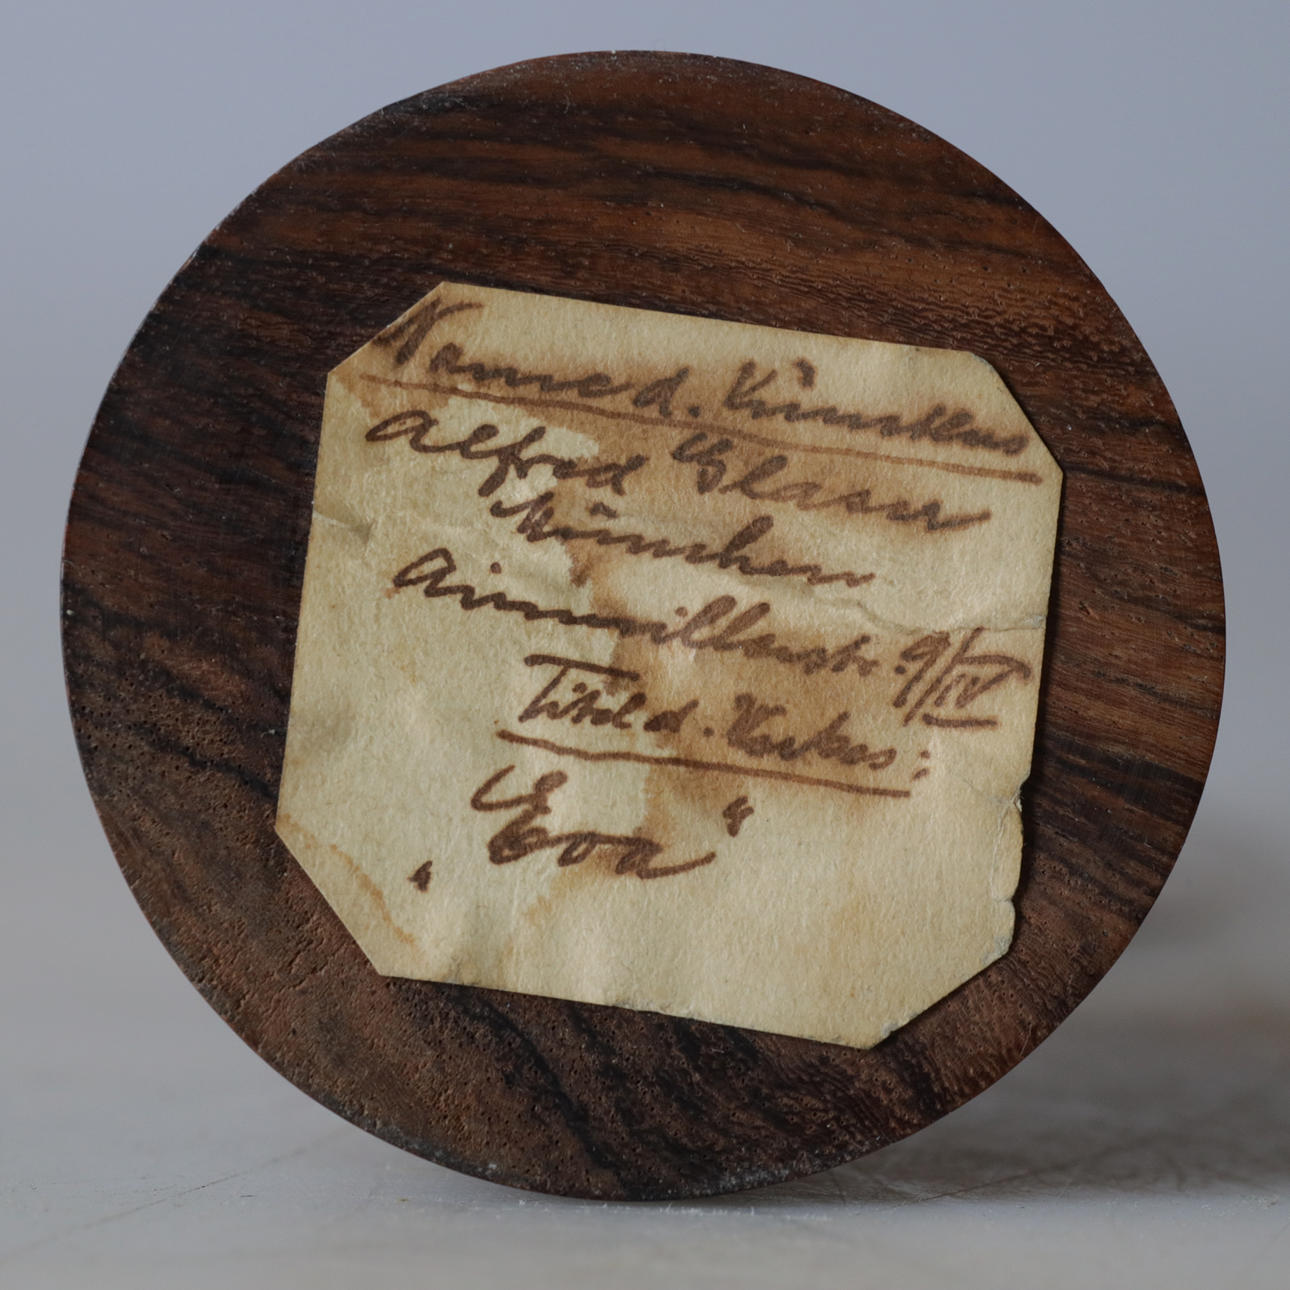 Name d. Künstlers
Alfred Glaser
München
Ainmillerstr. 9/IV
Titel d. Werkes:
„Eva“